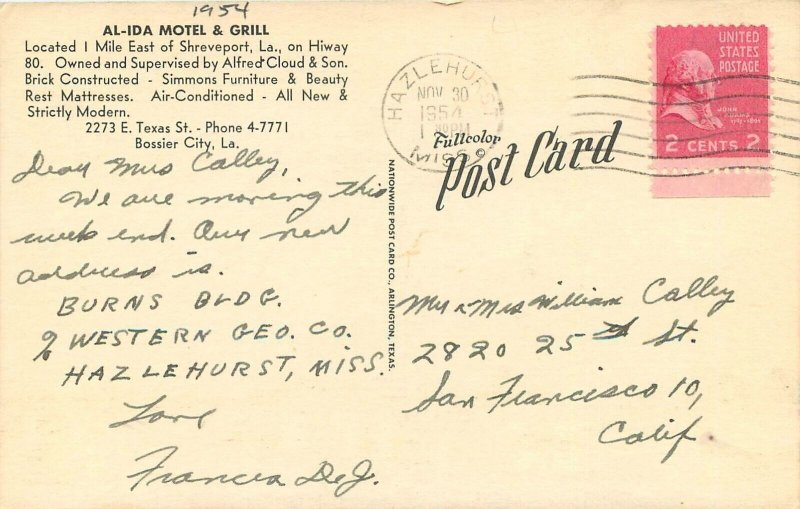 1954
AL-IDA MOTEL & GRILL
Located 1 Mile East of Shreveport, La., on Hiway
80. Owned and Supervised by Alfred Cloud & Son.
Brick Constructed - Simmons Furniture & Beauty
Rest Mattresses. Air-Conditioned - All New &
Strictly Modern.
2273 E. Texas St. - Phone 4-7771
Bossier City, La.
Dear Mrs Calley,
We are moving this
week end. Our new
address is.
BURNS BLDG.
% WESTERN GEO. CO.
HAZLEHURST, MISS.
Love
Frances DeJ.
NATIONWIDE POST CARD CO., ARLINGTON, TEXAS.
HAZLEHURST
NOV 30
1954
MISS
Fullcolor
Post Card
UNITED
STATES
POSTAGE
JOHN
ADAMS
2 CENTS 2
Mr & Mrs William Calley
2820 25th St.
San Francisco 10,
Calif